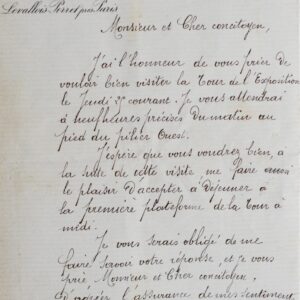 Levallois-Perret près Paris
Monsieur et Cher concitoyen,
J'ai l'honneur de vous prier de
vouloir bien visiter la Tour de l'Exposition
le Jeudi courant. Je vous attendrai
à neuf heures précises du matin au
pied du pilier Ouest.
J'espère que vous voudrez bien, à
la suite de cette visite, me faire aussi
le plaisir d'accepter à déjeuner à
la première plateforme de la Tour à
midi.
Je vous serais obligé de me
faire savoir votre réponse, et je vous
prie, Monsieur et Cher concitoyen,
d'agréer l'assurance de mes sentiments